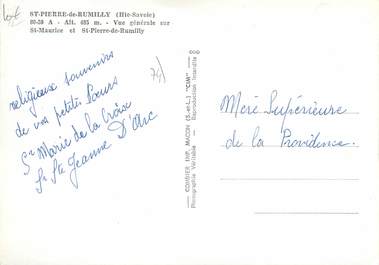 Lot
ST-PIERRE-de-RUMILLY (Hte-Savoie)
80-59 A - Alt. 685 m. - Vue générale sur
St-Maurice et St-Pierre-de-Rumilly
74)
religieux souvenirs
de vos petites Sœurs
Sr Marie de la Croix
Sr Ste Jeanne D'Arc
COMBIER IMP. MACON (S.-et-L.) "CIM"
Photographie Véritable - Reproduction Interdite
Mère Supérieure
de la Providence.